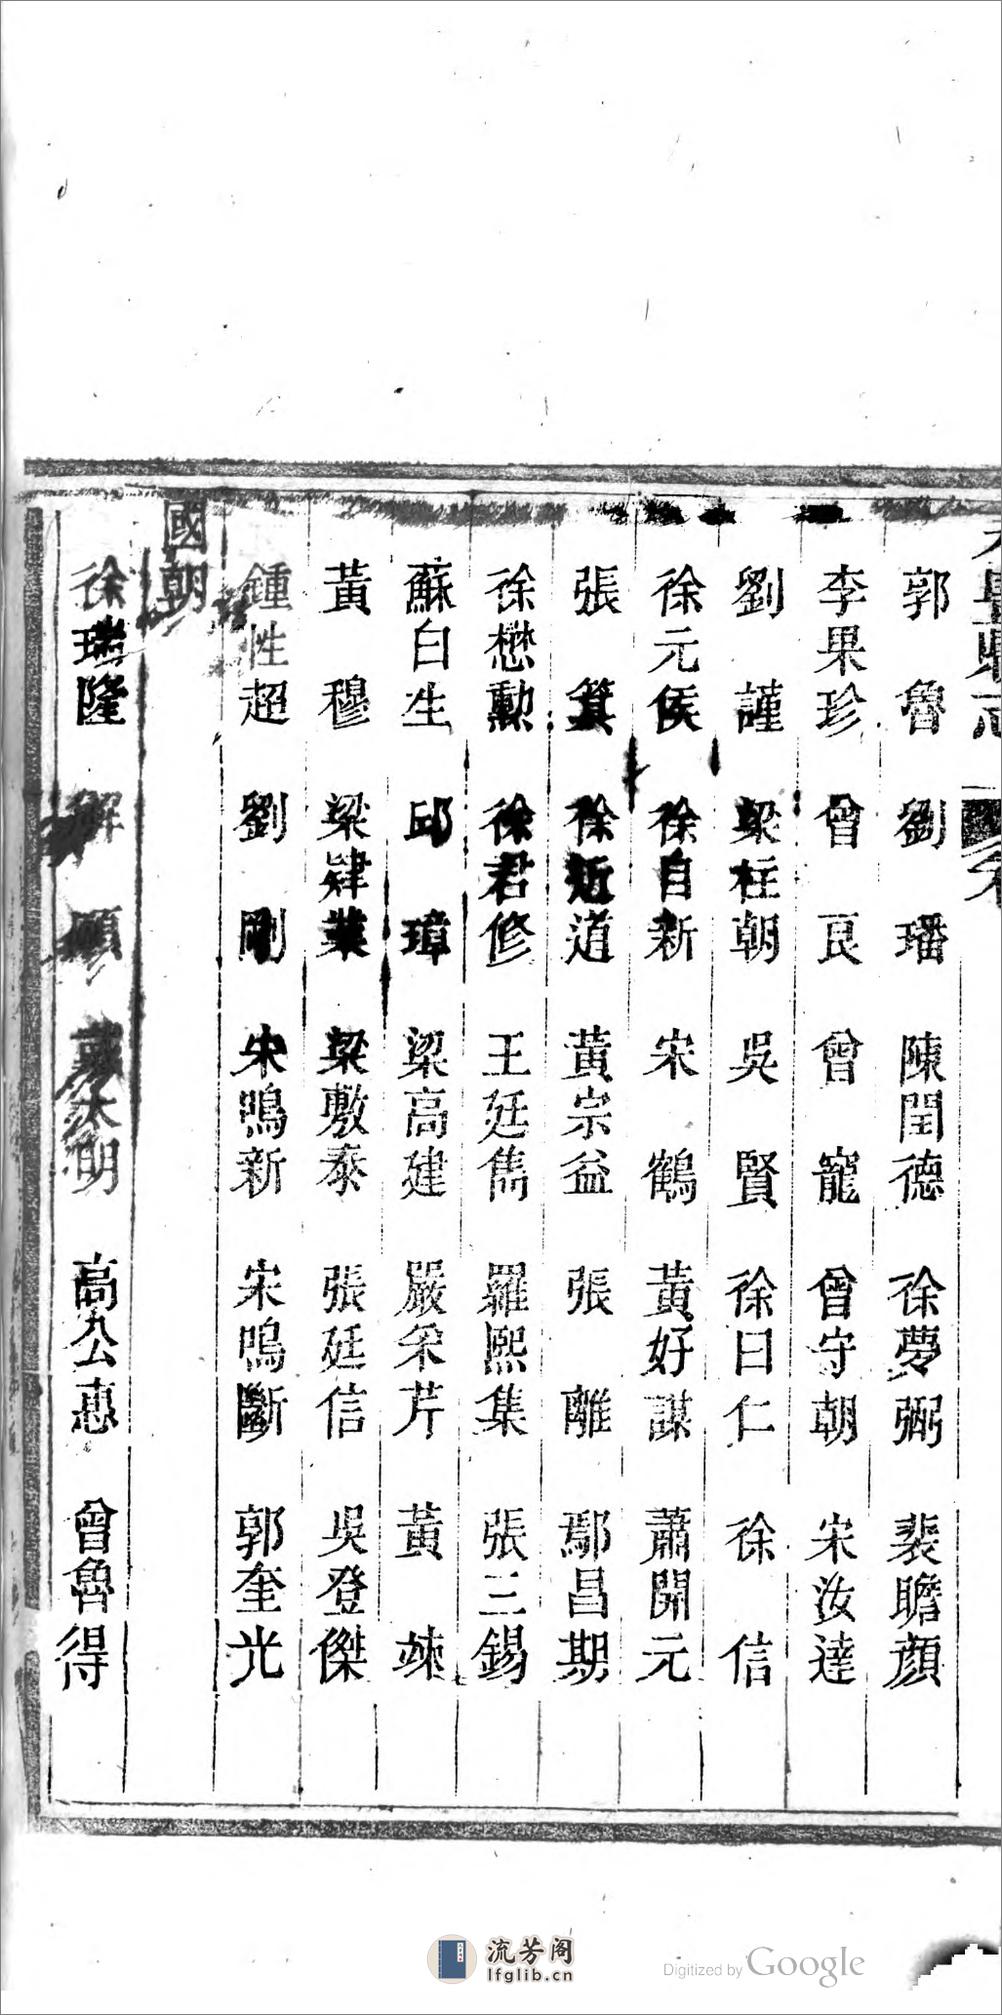 郭魯 劉璠 陳閏德 徐夢弼 裴瞻顔
李果珍 曾良 曾寵 曾守朝 宋汝達
劉謹 梁柱朝 吳賢 徐曰仁 徐信
徐元侯 徐自新 宋鶴 黃好謀 蕭開元
張箕 徐近道 黃宗益 張離 鄢昌期
徐懋勲 徐君修 王廷雋 羅熙集 張三錫
蘇白生 邱璋 梁高建 嚴采芹 黃竦
黃穆 梁肄業 梁敷泰 張廷信 吳登傑
鍾性超 劉剛 宋鳴新 宋鳴斷 郭奎光
國朝
徐瑞隆 解頤 大明 高公惠 曾魯得
流芳阁
lfglib.cn
Digitized by Google